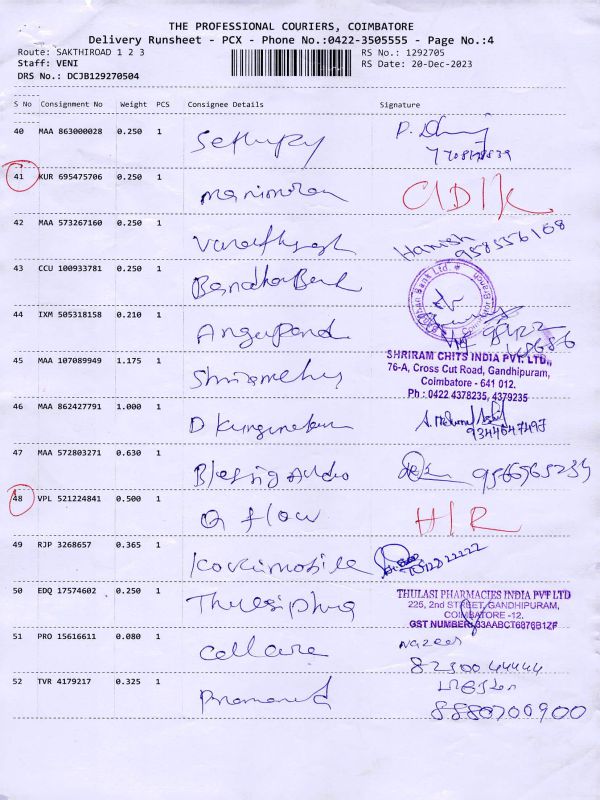 THE PROFESSIONAL COURIERS, COIMBATORE
Delivery Runsheet - PCX - Phone No.:0422-3505555 - Page No.:4
Route: SAKTHIROAD 1 2 3 RS No.: 1292705
Staff: VENI RS Date: 20-Dec-2023
DRS No.: DCJB129270504
S No Consignment No Weight PCS Consignee Details Signature
40 MAA 863000028 0.250 1
41 KUR 695475706 0.250 1
42 MAA 573267160 0.250 1 Harish
9585556168
43 CCU 100933781 0.250 1 Bandhan Bank
44 IXM 505318158 0.210 1
45 MAA 107089949 1.175 1 SHRIRAM CHITS INDIA PVT. LTD.,
76-A, Cross Cut Road, Gandhipuram,
Coimbatore - 641 012.
Ph : 0422 4378235, 4379235
46 MAA 862427791 1.000 1 9344647497
47 MAA 572803271 0.630 1 Blessing Audio
48 VPL 521224841 0.500 1 Q flow H/R
49 RJP 3268657 0.365 1
50 EDQ 17574602 0.250 1 THULASI PHARMACIES INDIA PVT LTD
225, 2nd STREET, GANDHIPURAM,
COIMBATORE -12.
GST NUMBER: 33AABCT6876B1ZF
51 PRO 15616611 0.080 1 Cellcare Nazeer
8230044444
52 TVR 4179217 0.325 1
8880700900